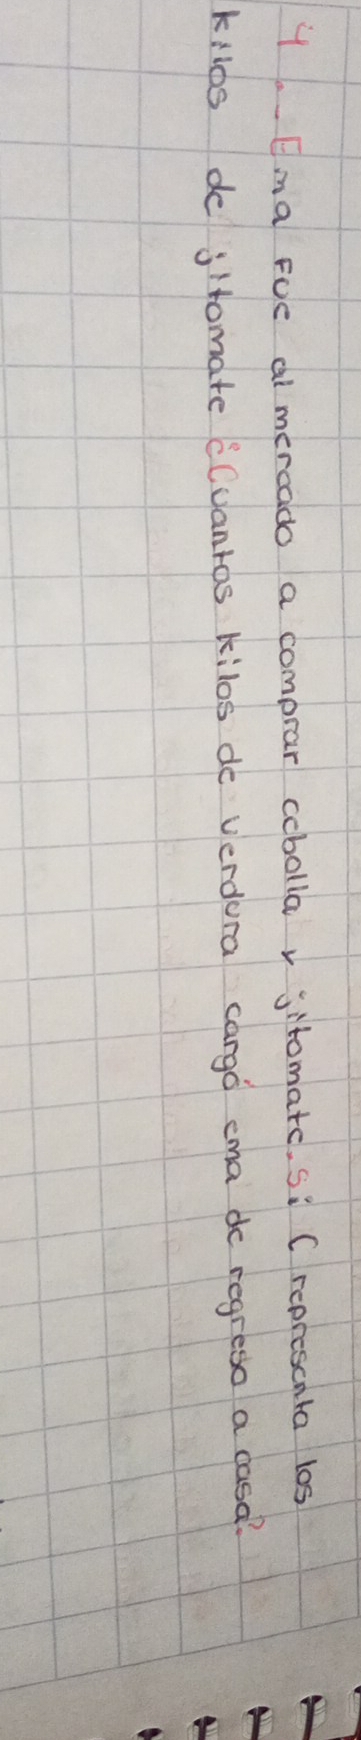 4.- Ema Fue al mercado a comprar cebolla y jitomate. si C representa los
kilos de jitomate ¿Cuantos kilos de verdura cargó ema de regreso a casa?